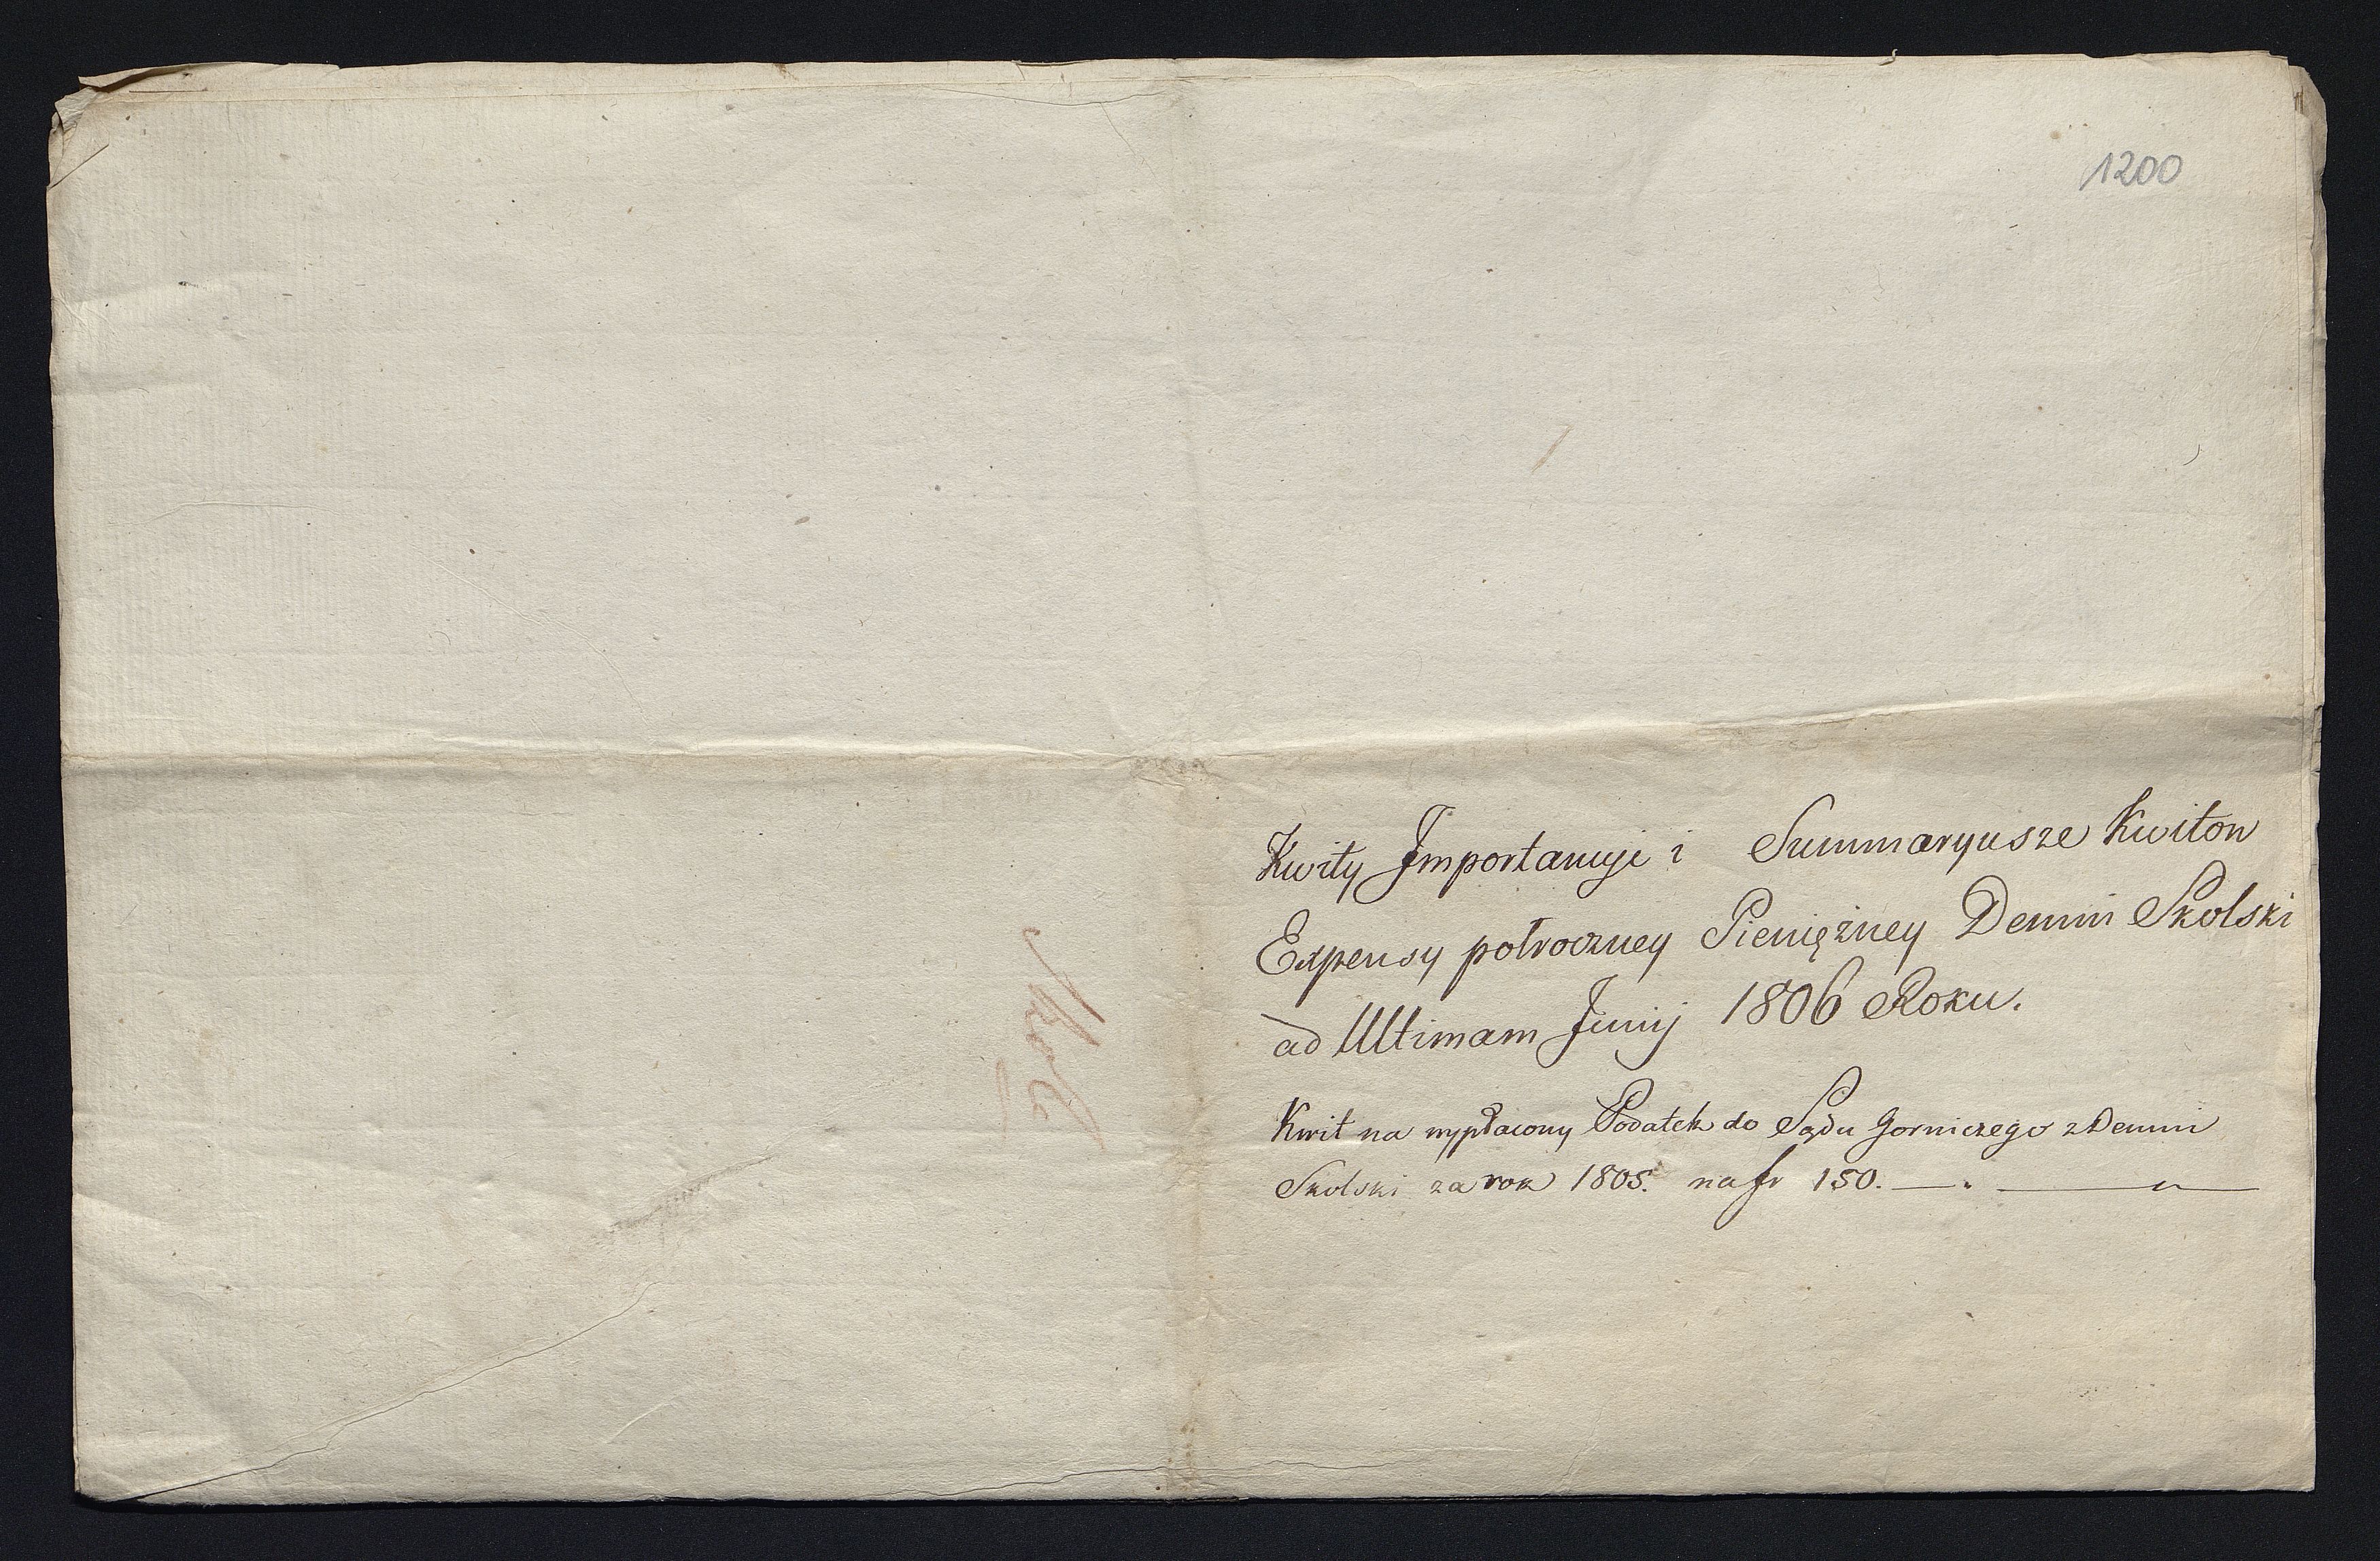 1200
Kwity Importancyi i Summaryusze Kwitow
Expensy połroczney Pieniężney Demni Skolski
ad Ultimam Junij 1806 Roku.
Kwit na wypłacony Podatek do Sądu Gorniczego z Demni
Skolski za rok 1805. na fr 150. — . —